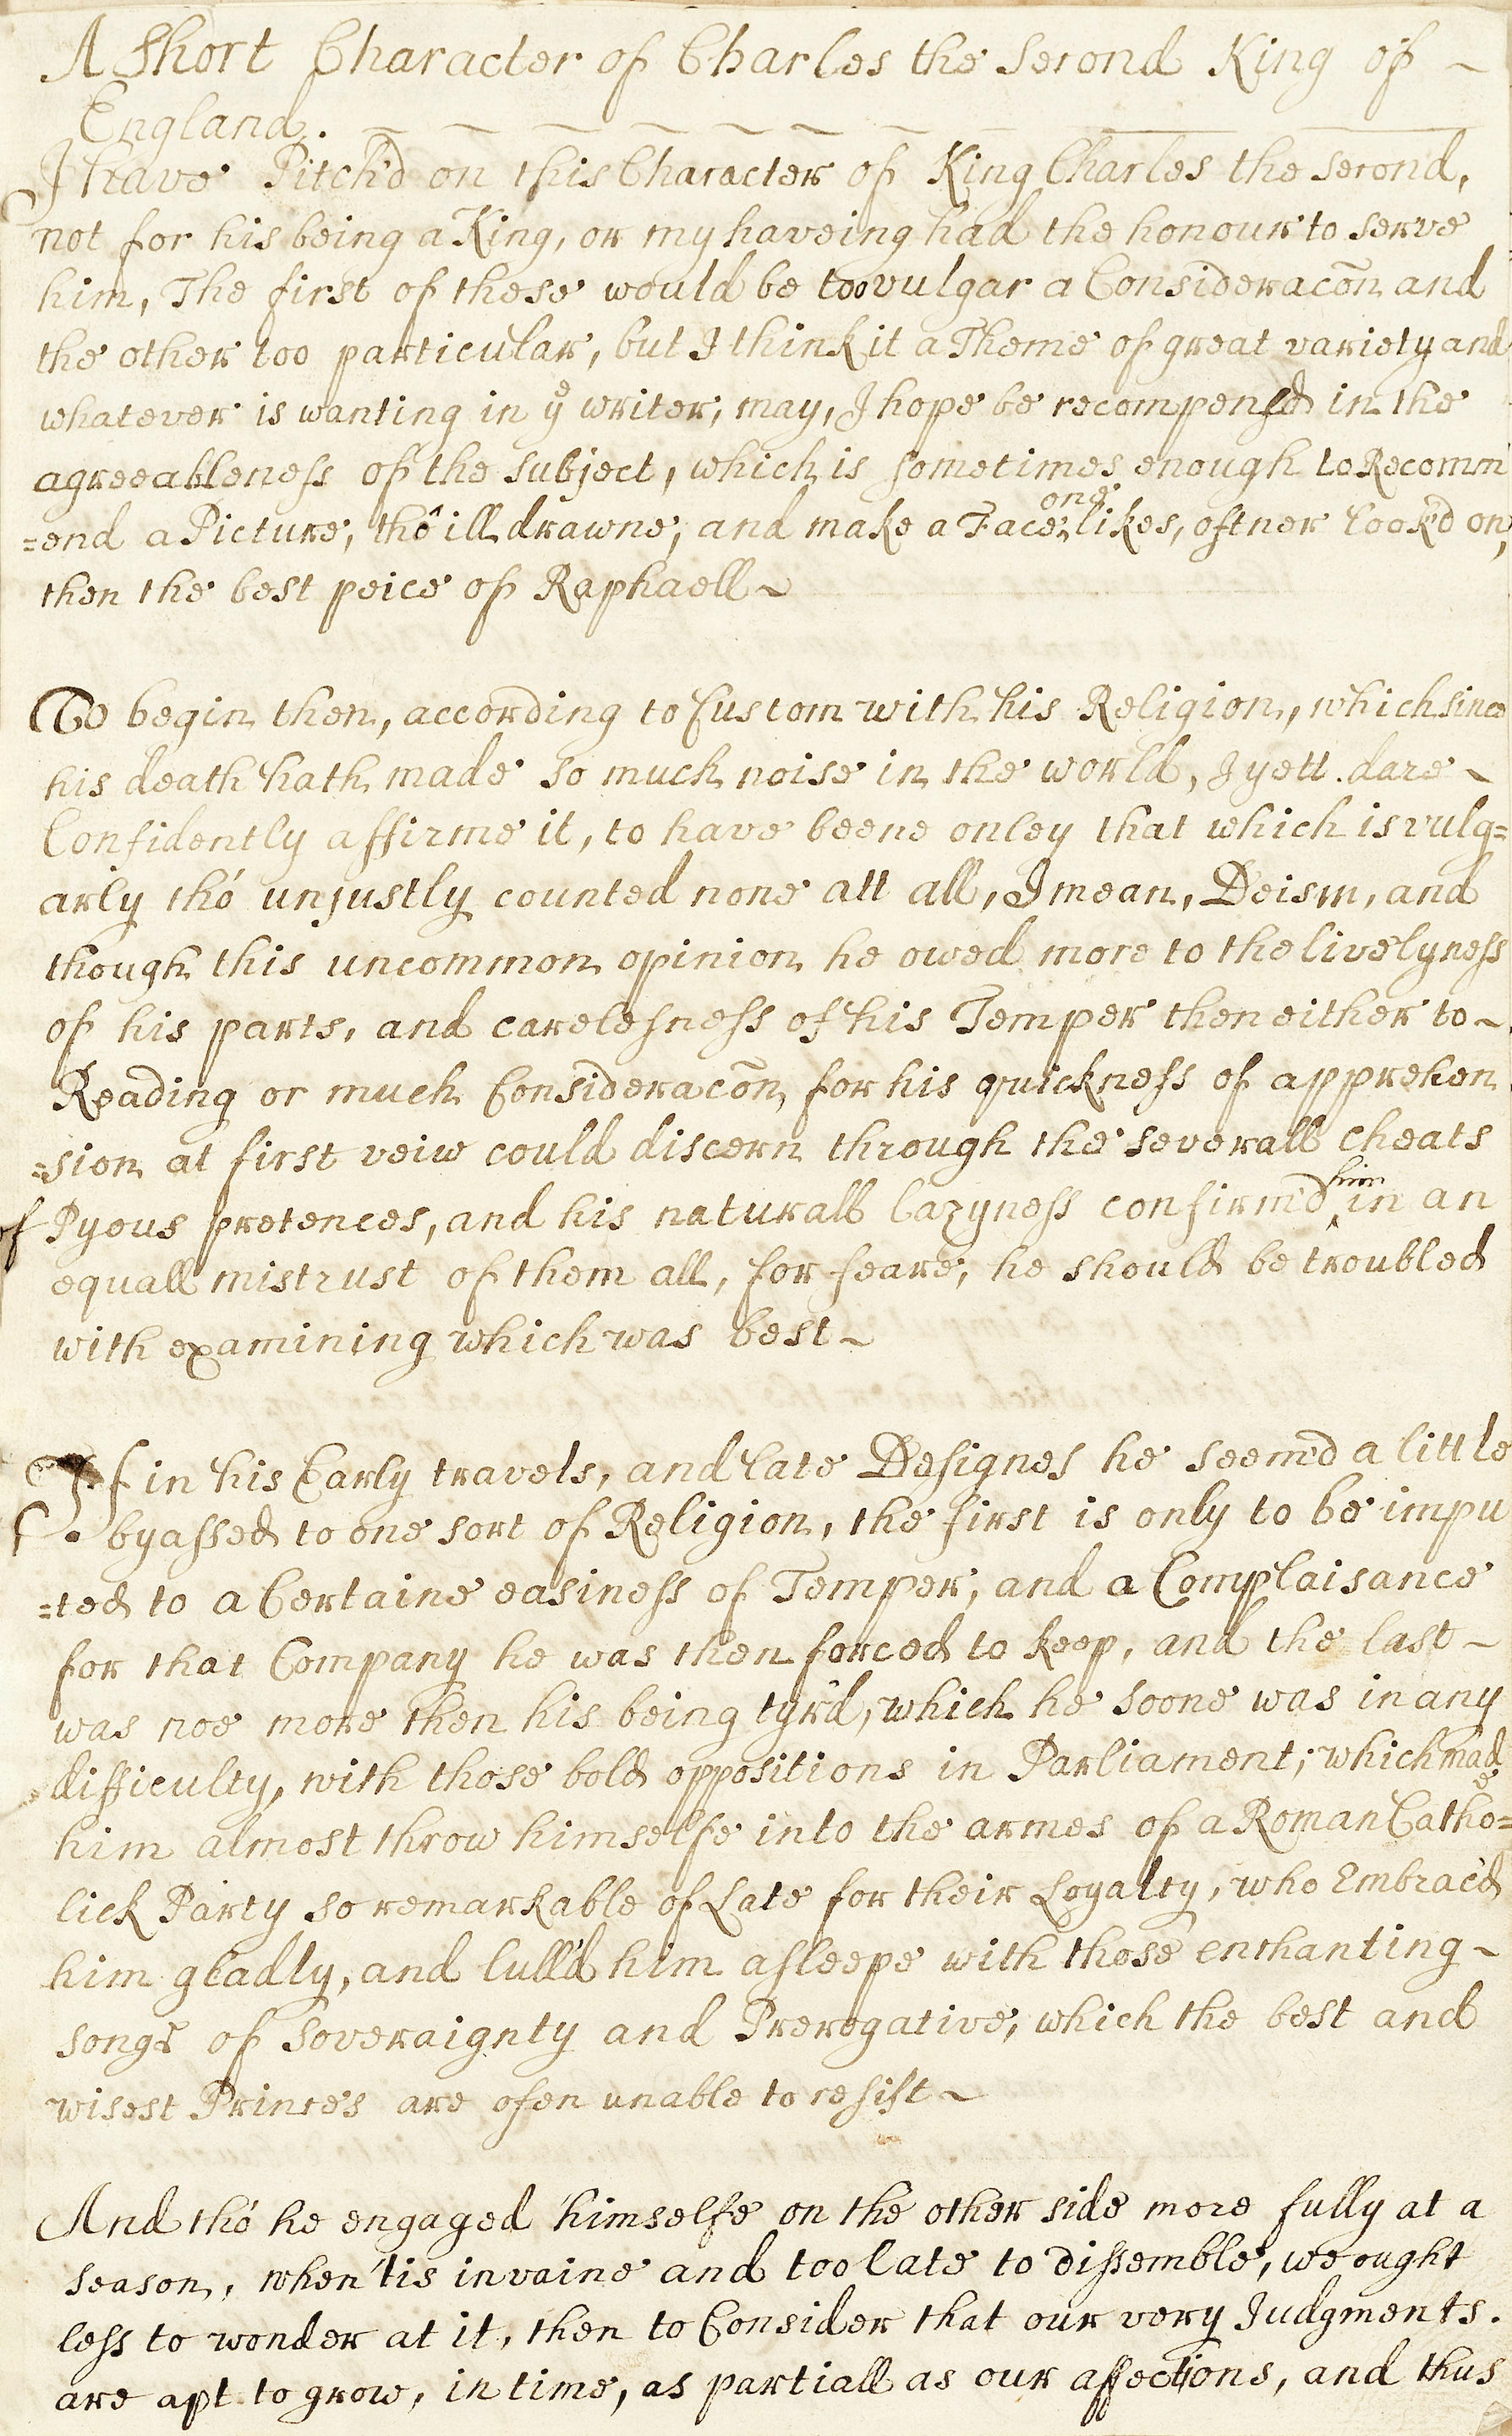 A Short Character of Charles the Second King of ~
England.
I have Pitch'd on this Character of King Charles the Second,
not for his being a King, or my haveing had the honour to serve
him, The first of these would be too vulgar a Consideracōn and
the other too particular, but I think it a Theme of great variety and
whatever is wanting in yͤ writer, may, I hope be recompensed in the
agreeableness of the subject, which is sometimes enough to Recomm
=end a Picture, thô ill drawne, and make a Face one likes, oftner look'd on,
then the best peice of Raphaell ~
To begin then, according to Custom with his Religion, which since
his death hath made so much noise in the world, I yett dare ~
Confidently affirme it, to have beene onley that which is vulg=
arly thó unjustly counted none att all, I mean, Deism, and
though this uncommon opinion he owed more to the livelyness
of his parts, and carelesness of his Temper then either to ~
Reading or much Consideracōn, for his quickness of apprehen
=sion at first veiw could discern through the severall cheats
of Pyous pretences, and his naturall lazyness confirm'd him in an
equall mistrust of them all, for feare, he should be troubled
with examining which was best ~
If in his Early travels, and late Designes he seem'd a little
byassed to one sort of Religion, the first is only to be impu
=ted to a Certaine easiness of Temper, and a Complaisance
for that Company he was then forced to keep, and the last ~
was noe more then his being tyr'd, which he soone was in any
difficulty, with those bold oppositions in Parliament; which made
him almost throw himselfe into the armes of a Roman Catho=
lick Party so remarkable of Late for their Loyalty, who Embrac'd
him gladly, and lull'd him asleepe with those enchanting ~
songs of Soveraignty and Prerogative, which the best and
wisest Princes are ofen unable to resist ~
And thó he engaged himselfe on the other side more fully at a
season, when 'tis in vaine and too late to dissemble, we ought
less to wonder at it, then to Consider that our very Judgments.
are apt to grow, in time, as partiall as our affections, and thus